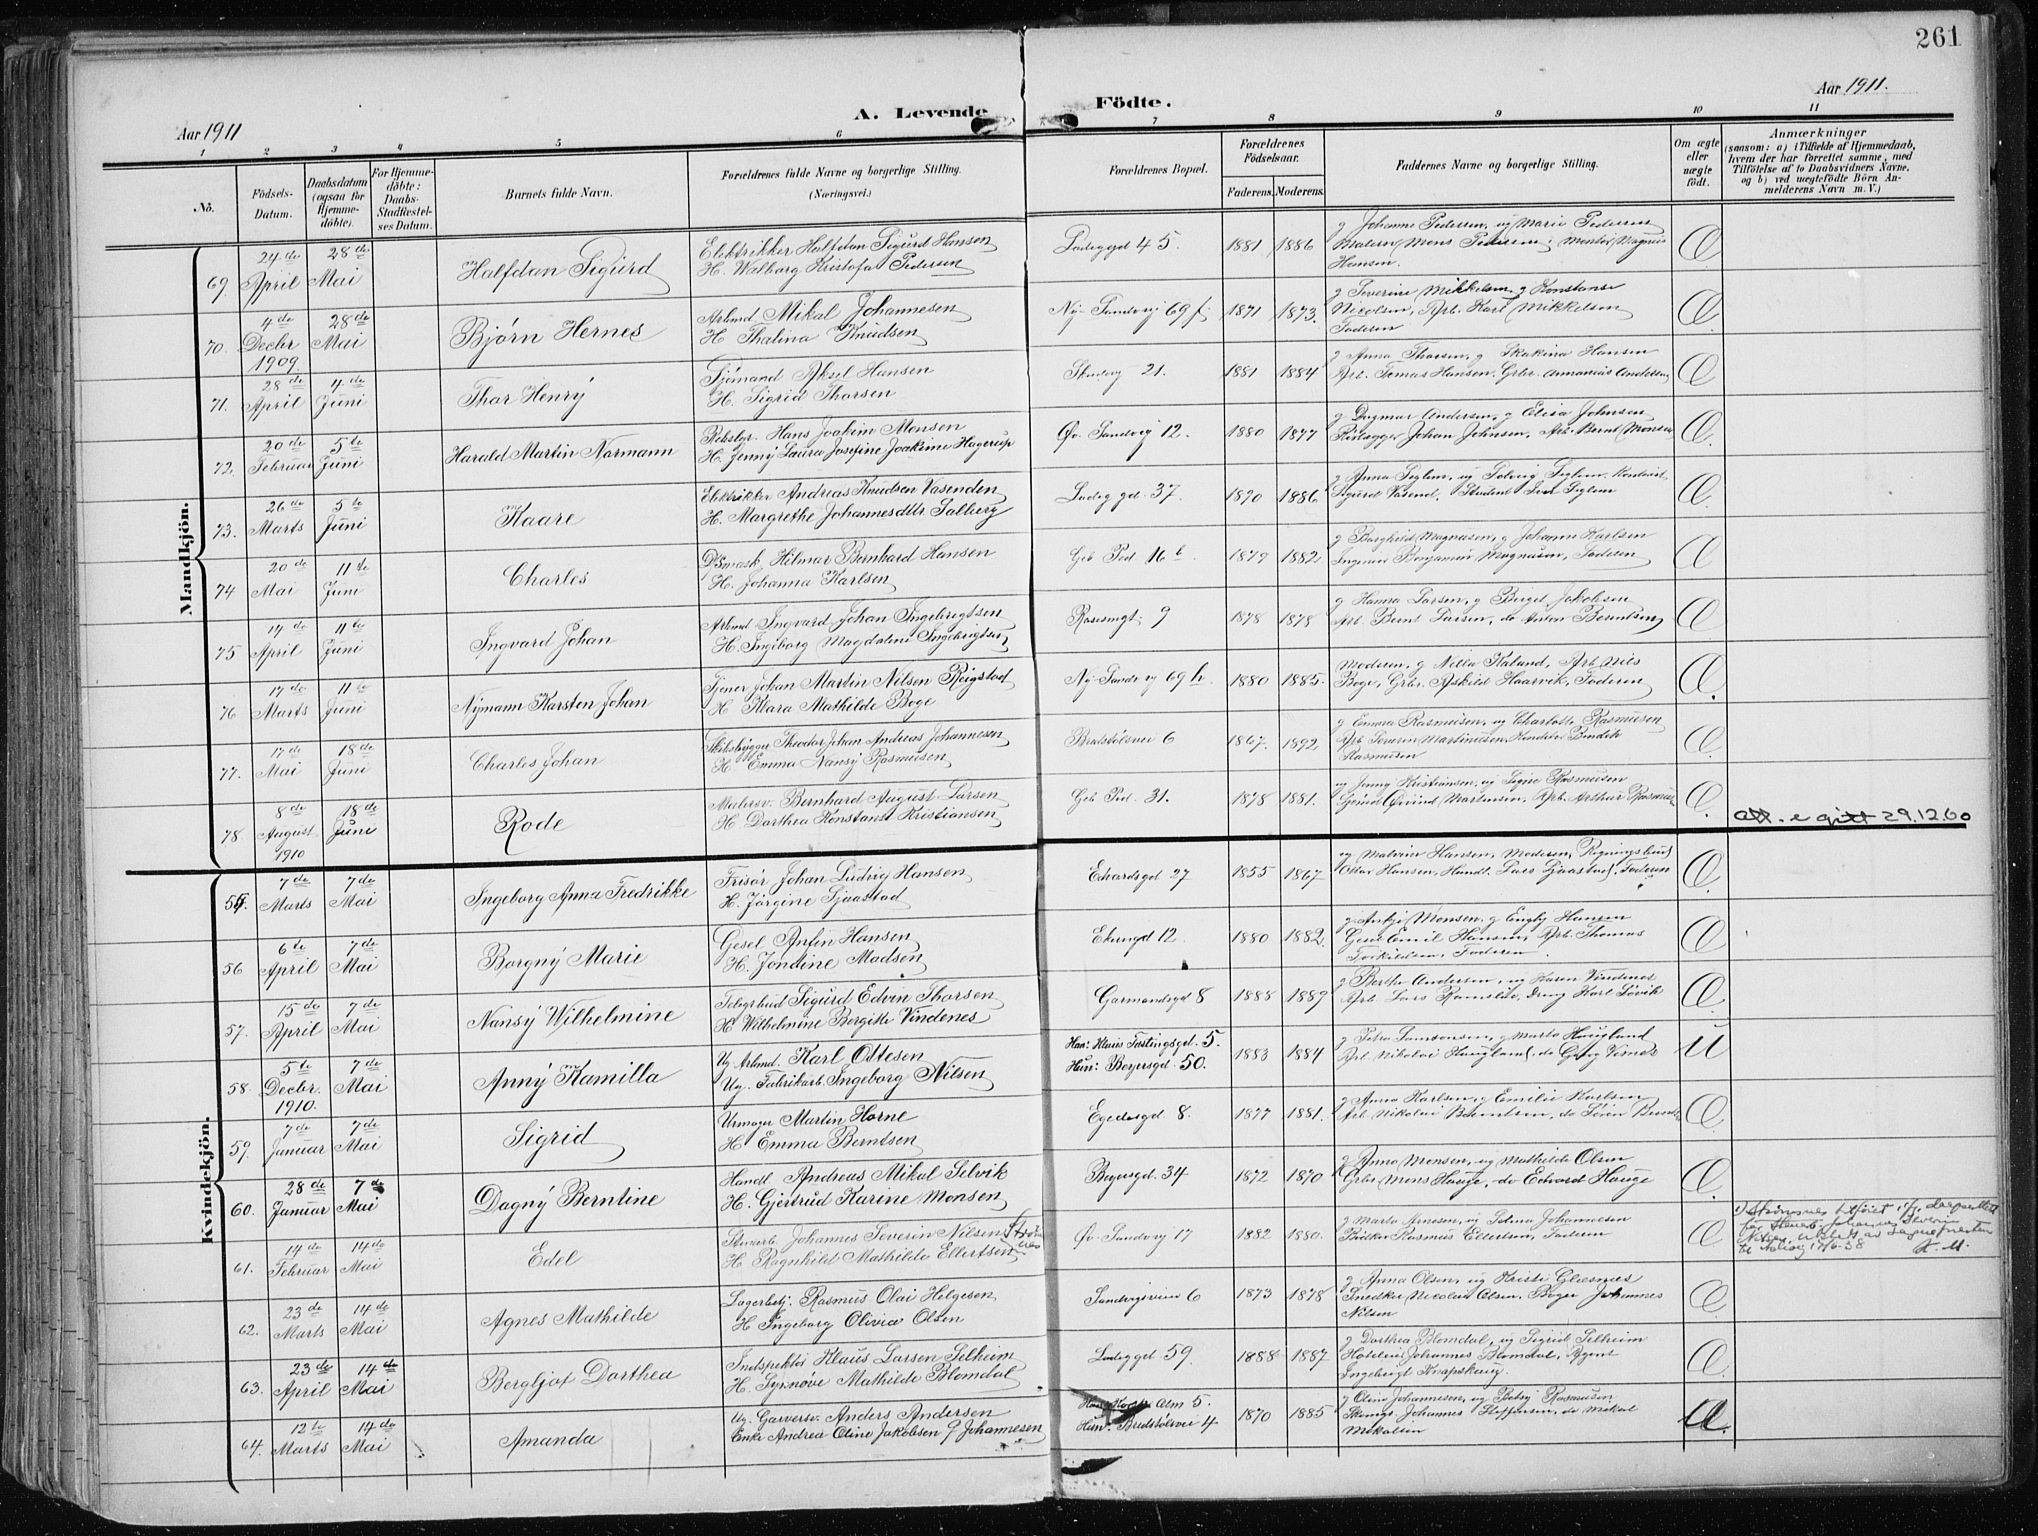 261
Aar 1911
Aar 1911.
A. Levende
Födte.
1 2 3 4 5 6 7 8 9 10 11
No.
Födsels-Datum.
Daabsdatum (ogsaa for Hjemmedöbte).
For Hjemmedöbte: Daabs-Stadfæstelses Datum.
Barnets fulde Navn.
Forældrenes fulde Navne og borgerlige Stilling. (Næringsvei.)
Forældrenes Bopæl.
Forældrenes Födselsaar.
Faderens. Moderens.
Faddernes Navne og borgerlige Stilling.
Om ægte eller uægte födt.
Anmærkninger
(saasom: a) i Tilfælde af Hjemmedaab, hvem der har forrettet samme, med Tilföielse af to Daabsvidners Navne, og b) ved uægtefödte Börn Anmelderens Navn m. V.)
Mandkjön.
69. 24de April 28de Mai Halfdan Sigurd
Elektrikker Halfdan Sigurd Hansen
H. Walborg Kristofa Pedersen
Ladeggd 45. 1881 1886
g Johanne Pedersen, ug Marie Pedersen
Maleren Mons Pedersen, Montør Magnus
Hansen.
70. 4de Decbr 1909 28de Mai Bjørn Hernes
Arbmd Mikal Johannesen
H Thalina Knudsen
Ny-Sandvig 69 f. 1871 1873.
g Severine Mikkelsen, g Konstanse
Nicolsen, Arb. Karl Mikkelsen
Faderen
71. 28de April 4de Juni Thor Henry
Sjømand Aksel Hansen
H. Sigrid Thorsen
Skudevg 21. 1881 1884
g Anna Thorsen, g Skakina Hansen
Arb. Tomas Hansen, Grbr. Annanias Andersen
72. 20de Februar 5te Juni Harald Martin Normann
Rebslgr. Hans Joakim Monsen
H. Jenny Laura Josefine Joakime Hagerup
Øv. Sandvig 12. 1880 1877
g Dagmar Andersen, g Elisa Johnsen
Johan Johnsen, Arb. Bernt Monsen
73. 26de Marts 5te Juni Kaare
Elektrikker Andreas Knudsen Vasenden
H. Margrethe Johannesdttr Solberg
Ladeg gd. 37. 1890 1886
g Anna Seglem, ug Solveig Seglem
Sigurd Vasend, Student
74 20de Mai 11te Juni Charles
Hilmar Bernhard Hansen
H. Johanna Karlsen
Geb Pod 16 b 1879 1882
g Borghild Magnusen, g Johanna Karlsen
Ingeniør Benjamin Magnusen, Faderen
75 17de April 11te Juni Ingvard Johan
Arbmd Ingvard Johan Ingebregtsen
H. Ingeborg Magdalene Ingebrigtsen
Rosesmgt. 9 1878 1878
g Hanna Larsen, g Berget Jakobsen
Arb. Bernt Larsen, do Anton Berentsen
76 17de Marts 11te Juni Nymann Karsten Johan
Tjener Johan Martin Nilsen Røigstad
H Klara Mathilde Boge
Ny-Sandvig 69 h. 1880 1885.
Moderen, g Nilla Kaland, Arb. Nils
Boge, Grbr. Askild Haarvik, Faderen
77. 17de Mai 18de Juni Charles Johan
Skibsbygger Theodor Johan Andreas Johannesen
H. Emma Nansy Rasmusen
Bradstølsvei 6 1867. 1892
g Emma Rasmusen, ug Charlotte Rasmusen
Arb. Severin Martinusen, Handelsr. Bendik
Rasmusen
78 8de August 1910 18de Juni Rode
Malersv. Bernhard August Larsen
H. Dorthea Konstanse Kristiansen
Geb Pod. 31. 1878 1881.
ug Jenny Kristiansen, ug Signe Rasmusen
Øivind Martensen, Arb. Arthur Rasmusen
Att. e gitt 29.12 60
Kvindekjön.
55. 7de Marts 7de Mai Ingeborg Anna Fredrikke
Frisør Johan Ludvig Hansen
H. Jørgine Sjaastad
Edvardsgd 27 1855 1867
ug Malvine Hansen, Moderen, Regningsbud
Olav Hansen, Handl. Lars Sjaastad, Faderen
56 6te April 7de Mai Borgny Marie
Gesel Anfin Hansen
H. Jondine Madsen
Ekrengd 12. 1880 1882.
g Ankje Monsen, g Engly Hansen
Gesel Emil Hansen, Arb. Thomas
Torkildsen, Faderen.
57. 15de April 7de Mai Nansy Wilhelmine
Telegrbud Sigurd Edvin Thorsen
H Wilhelmine Bergitte Vindenes
Garmandsgd 8 1888 1889
g Berthe Andersen, ug Karen Vindenes
Arb. Lars Ramslie, dreng Karl Løvik
58. 5te Decbr. 1910. 7de Mai Anny Kamilla
Ug. Arbmd. Karl Ottesen
Ug. Fabrikarb. Ingeborg Nilsen
Han: Klaus Fastingsgd. 5.
Hun: Beyersgd. 50.
1883 1884
g Petra Samsonsen, g Marta Haugland
Arb. Nikolai Haugland, do Georg Vines U
59. 7de Januar 7de Mai Sigrid
Urmager Martin Horne
H Emma Berntsen
Egedesgd 8. 1877 1881.
g Anna Karlsen, g Emilie Karlsen
Arb. Nikolai Berntsen, do Søren Berntsen
60. 28de Januar 7de Mai Dagny Berntine
Handl Andreas Mikal Selvik
H. Gjertrud Karine Monsen
Beyersgd. 34 1872 1870
g Anna Monsen, ug Mathilde Olsen
Grbr. Mons Hauge, do Edvard Hauge
61. 14de Februar 14de Mai Edel
Stuarb. Johannes Severin Nilsen Strømsnes
H. Ragnhild Mathilde Ellertsen
Øv. Sandvig 17 1882 1880.
g Marta Arnesen, ug Selma Johannesen
Snikker Rasmus Ellertsen, Faderen
1) Strømsnes tilføiet
Johannes Severin
Nilsen, utstedt av Sogneprester
17/6-38 K. M.
62. 23de Marts 14de Mai Agnes Mathilde
Lagerbetj. Rasmus Olai Helgesen
H Ingeborg Olivia Olsen
Sandvigsveien 6 1873 1878
g Anna Olsen, ug Kristi Glesnes
Snedker Nicolai Olsen, Bager Johannes
Nilsen
63. 23de April 14de Mai Bergljot Dorthea
Indspektør Klaus Larsen Selheim
H. Synnøve Mathilde Blomdal
Ladeggd 59. 1888 1887
g Dorthea Blomdal, ug Sigrid Selheim
Hoteleier Johannes Blomdal, Agent
Ingebrigt Knapskoug.
64. 12te Marts 14de Mai Amanda
Ug. Garversv. Anders Andersen
Enke Andrea Oline Jakobsen f Johannesen
Alm 5.
Hun: Bradstølsvei 4
1870 1885
g Oline Johannesen, ug Betsy Rasmusen
Johannes Steffensen, do Mikal
Mikalsen U